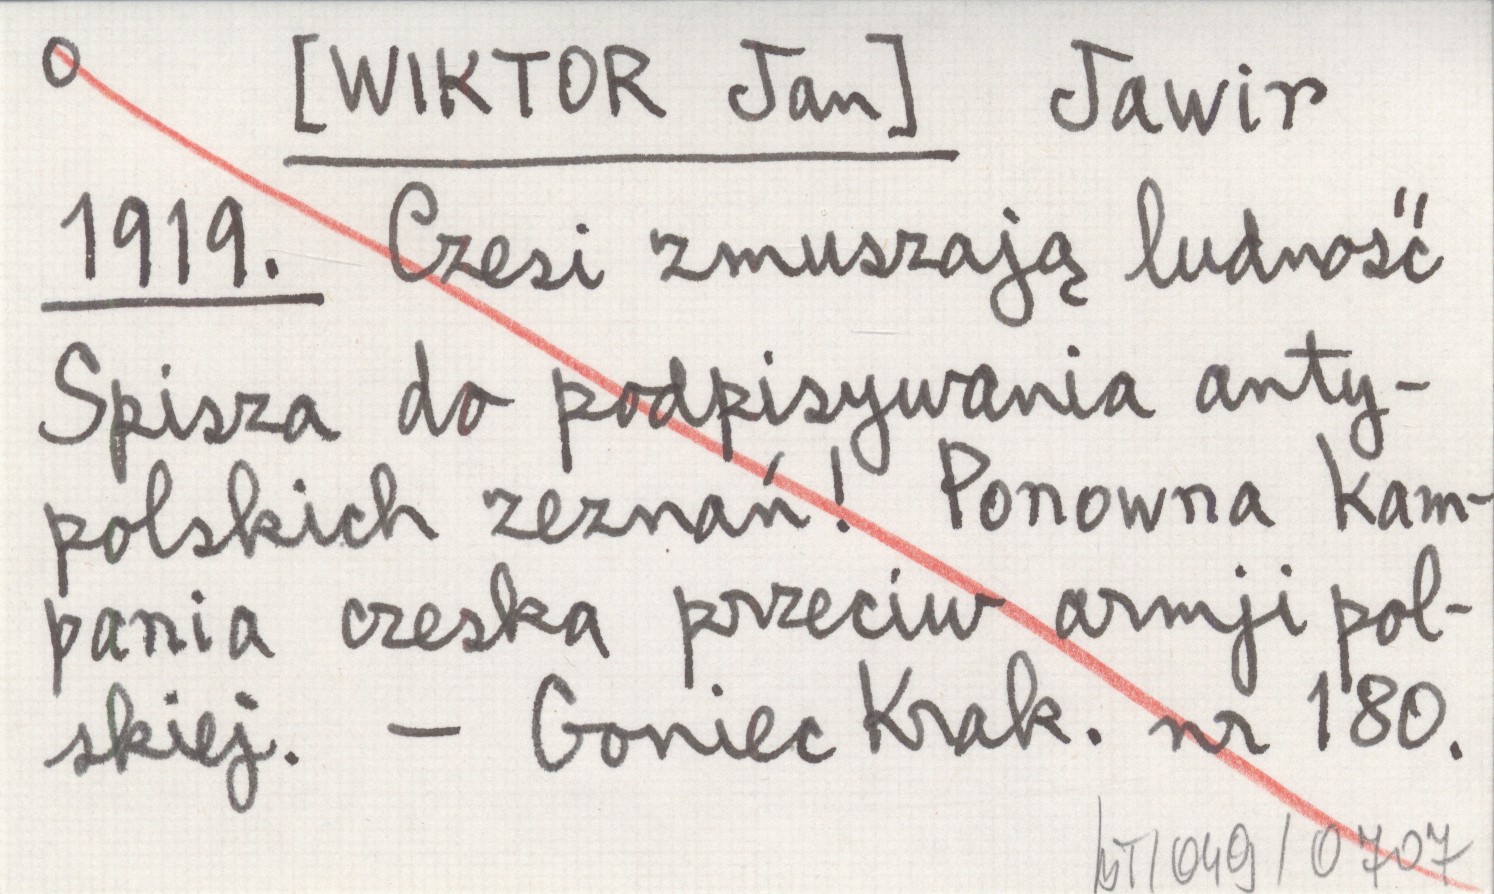 O [WIKTOR Jan] Jawir
1919. Czesi zmuszają ludność
Spisza do podpisywania anty-
polskich zeznań! Ponowna kam-
pania czeska przeciw armji pol-
skiej. – Goniec Krak. nr 180.
/049/0707